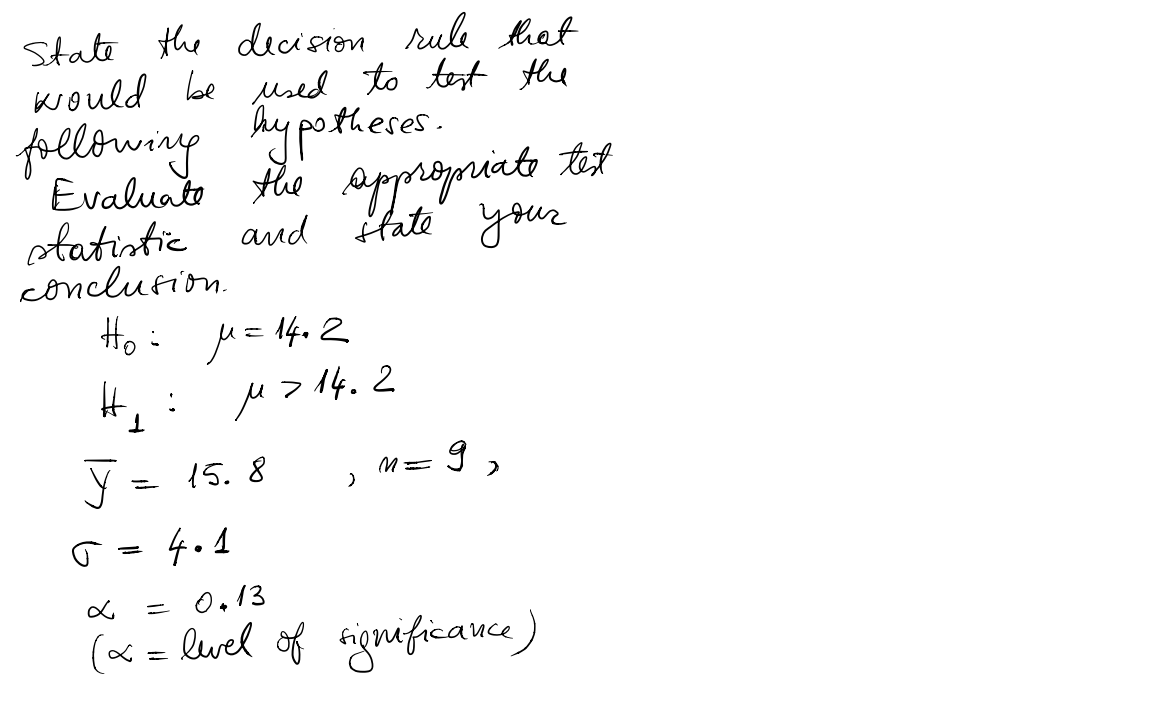 State the decision rule that
would be used to test the
following hypotheses.
Evaluate the appropriate test
statistic and state your
conclusion.
H₀ : μ = 14.2
H₁ : μ > 14.2
ȳ = 15.8 , n = 9 ,
σ = 4.1
α = 0.13
(α = level of significance)